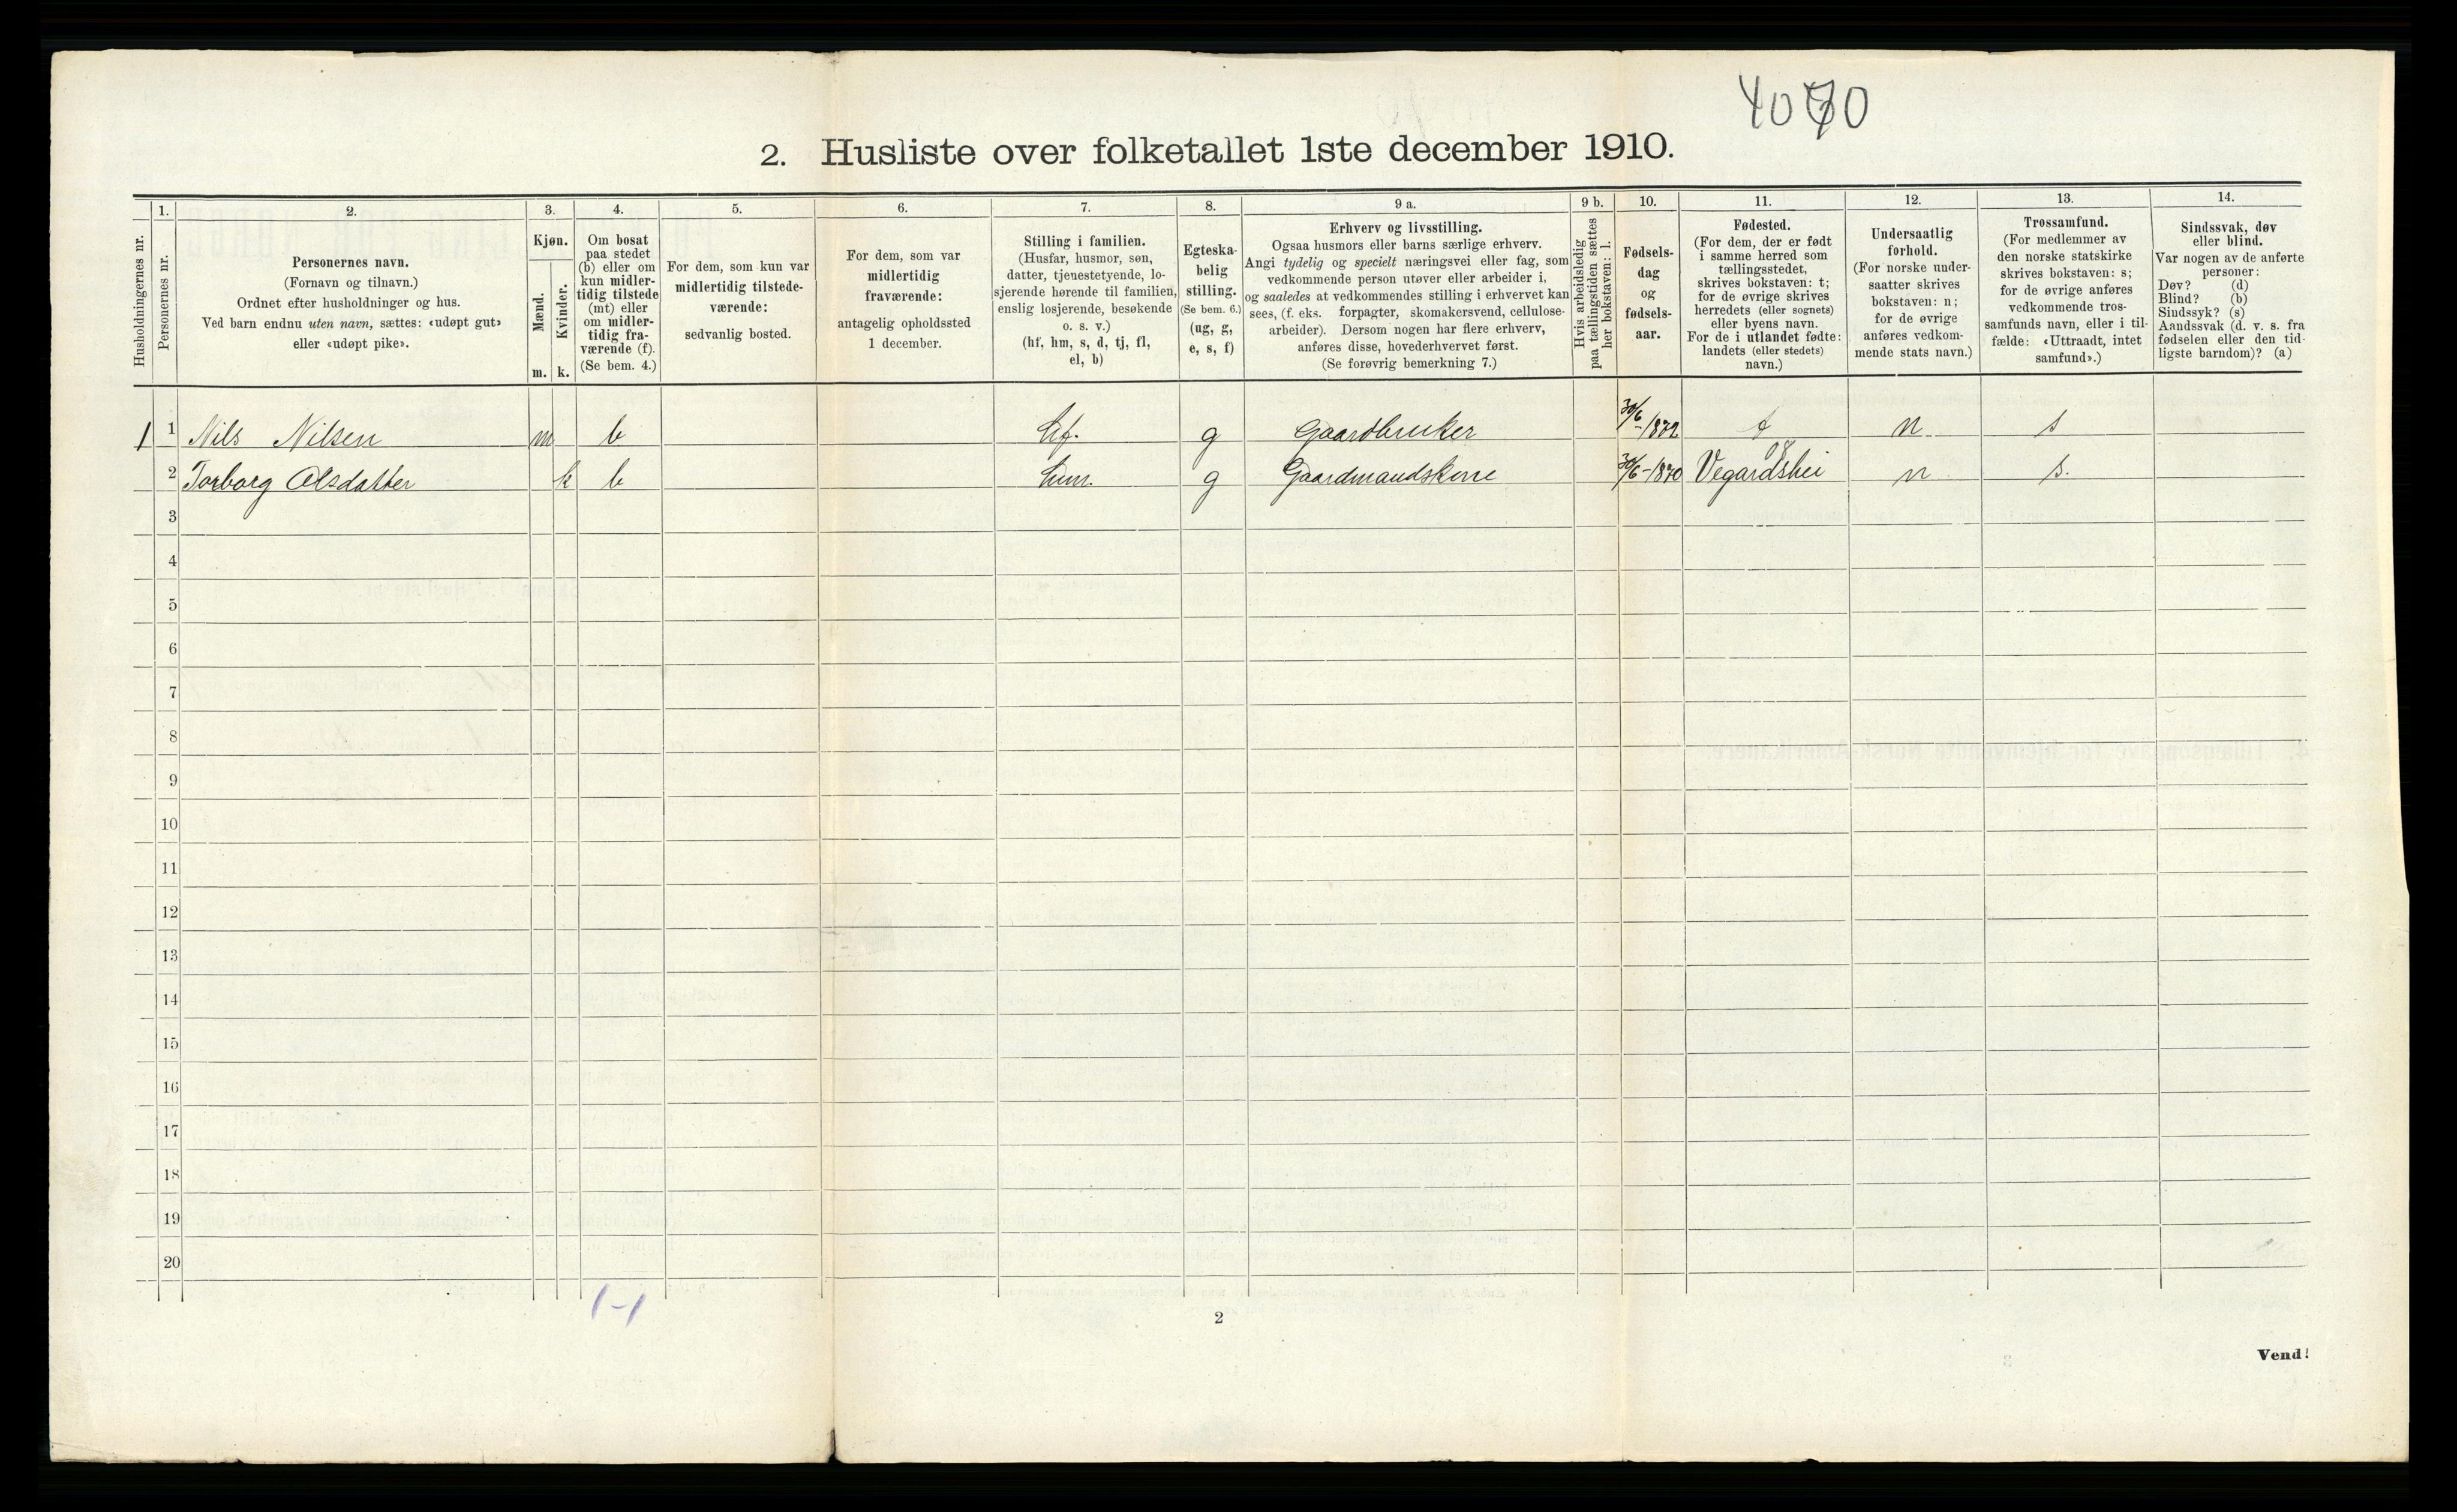 4070
2. Husliste over folketallet 1ste december 1910.
Husholdningernes nr.
1.
Personernes nr.
2.
Personernes navn.
(Fornavn og tilnavn.)
Ordnet efter husholdninger og hus.
Ved barn endnu uten navn, sættes: «udøpt gut»
eller «udøpt pike».
3.
Kjøn.
Mænd.
Kvinder.
m. k.
4.
Om bosat
paa stedet
(b) eller om
kun midler-
tidig tilstede
(mt) eller
om midler-
tidig fra-
værende (f).
(Se bem. 4.)
5.
For dem, som kun var
midlertidig tilstede-
værende:
sedvanlig bosted.
6.
For dem, som var
midlertidig
fraværende:
antagelig opholdssted
1 december.
7.
Stilling i familien.
(Husfar, husmor, søn,
datter, tjenestetyende, lo-
sjerende hørende til familien,
enslig losjerende, besøkende
o. s. v.)
(hf, hm, s, d, tj, fl,
el, b)
8.
Egteska-
belig
stilling.
(Se bem. 6.)
(ug, g,
e, s, f)
9 a.
Erhverv og livsstilling.
Ogsaa husmors eller barns særlige erhverv.
Angi tydelig og specielt næringsvei eller fag, som
vedkommende person utøver eller arbeider i,
og saaledes at vedkommendes stilling i erhvervet kan
sees, (f. eks. forpagter, skomakersvend, cellulose-
arbeider). Dersom nogen har flere erhverv,
anføres disse, hovederhvervet først.
(Se forøvrig bemerkning 7.)
9 b.
Hvis arbeidsledig
paa tællingstiden sættes
her bokstaven: l.
10.
Fødsels-
dag
og
fødsels-
aar.
11.
Fødested.
(For dem, der er født
i samme herred som
tællingsstedet,
skrives bokstaven: t;
for de øvrige skrives
herredets (eller sognets)
eller byens navn.
For de i utlandet fødte:
landets (eller stedets)
navn.)
12.
Undersaatlig
forhold.
(For norske under-
saatter skrives
bokstaven: n;
for de øvrige
anføres vedkom-
mende stats navn.)
13.
Trossamfund.
(For medlemmer av
den norske statskirke
skrives bokstaven: s;
for de øvrige anføres
vedkommende tros-
samfunds navn, eller i til-
fælde: «Uttraadt, intet
samfund».)
14.
Sindssvak, døv
eller blind.
Var nogen av de anførte
personer:
Døv? (d)
Blind? (b)
Sindssyk? (s)
Aandssvak (d. v. s. fra
fødselen eller den tid-
ligste barndom)? (a)
1 1 Nils Nilsen m b hf. g Gaardbruker 30/6-1872 t n s
2 Torborg Olsdatter k b hm. g Gaardmandskone 30/6-1870 Vegardshei n s.
3
4
5
6
7
8
9
10
11
12
13
14
15
16
17
18
19
20
1-1
2
Vend!